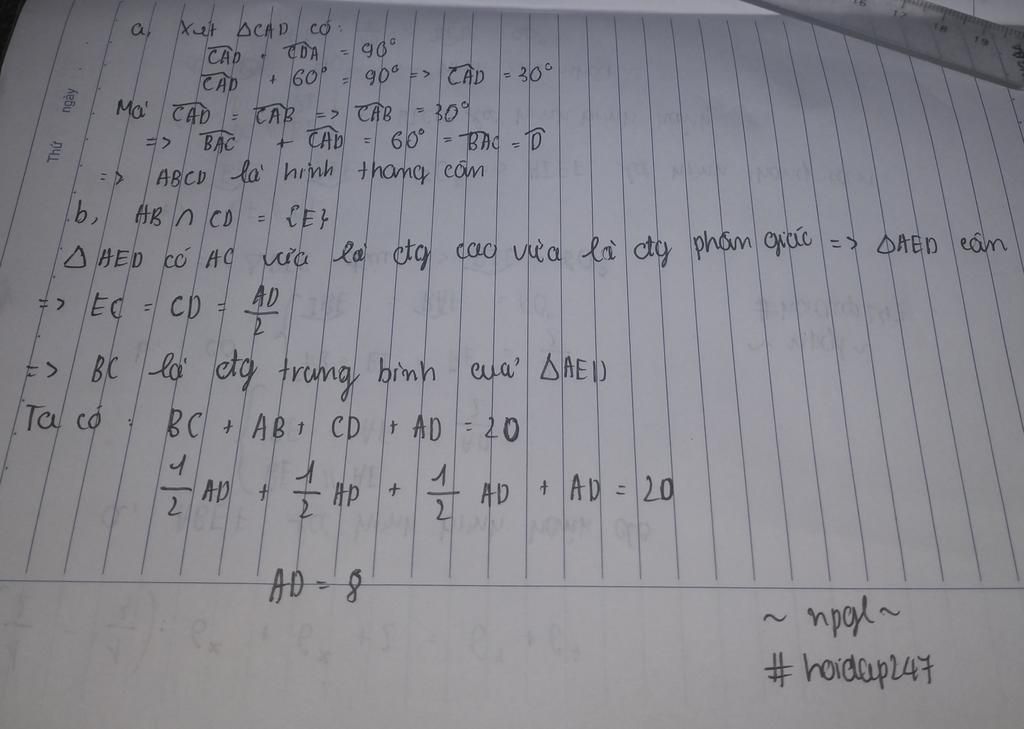 a, Xét ΔCAD có:
CAD + CDA = 90°
CAD + 60° = 90° => CAD = 30°
Mà CAD = CAB => CAB = 30°
=> BAC + CAD = 60° = BAC = D
=> ABCD là hình thang cân
b, AB ∩ CD = {E}
Δ AED có AC vừa là đtg cao vừa là đtg phân giác => ΔAED cân
=> EC = CD = AD/2
=> BC là đtg trung bình của ΔAED
Ta có: BC + AB + CD + AD = 20
1/2 AD + 1/2 AD + 1/2 AD + AD = 20
AD = 8
~ npgl ~
# hoidap247
Thứ ngày
16 17 18 19